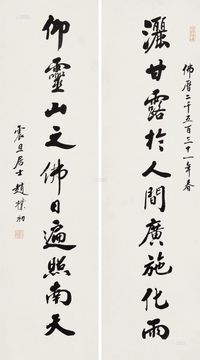 佛曆二千五百三十一年春
灑甘露於人間廣施化雨
仰靈山之佛日遍照南天
震旦居士趙樸初